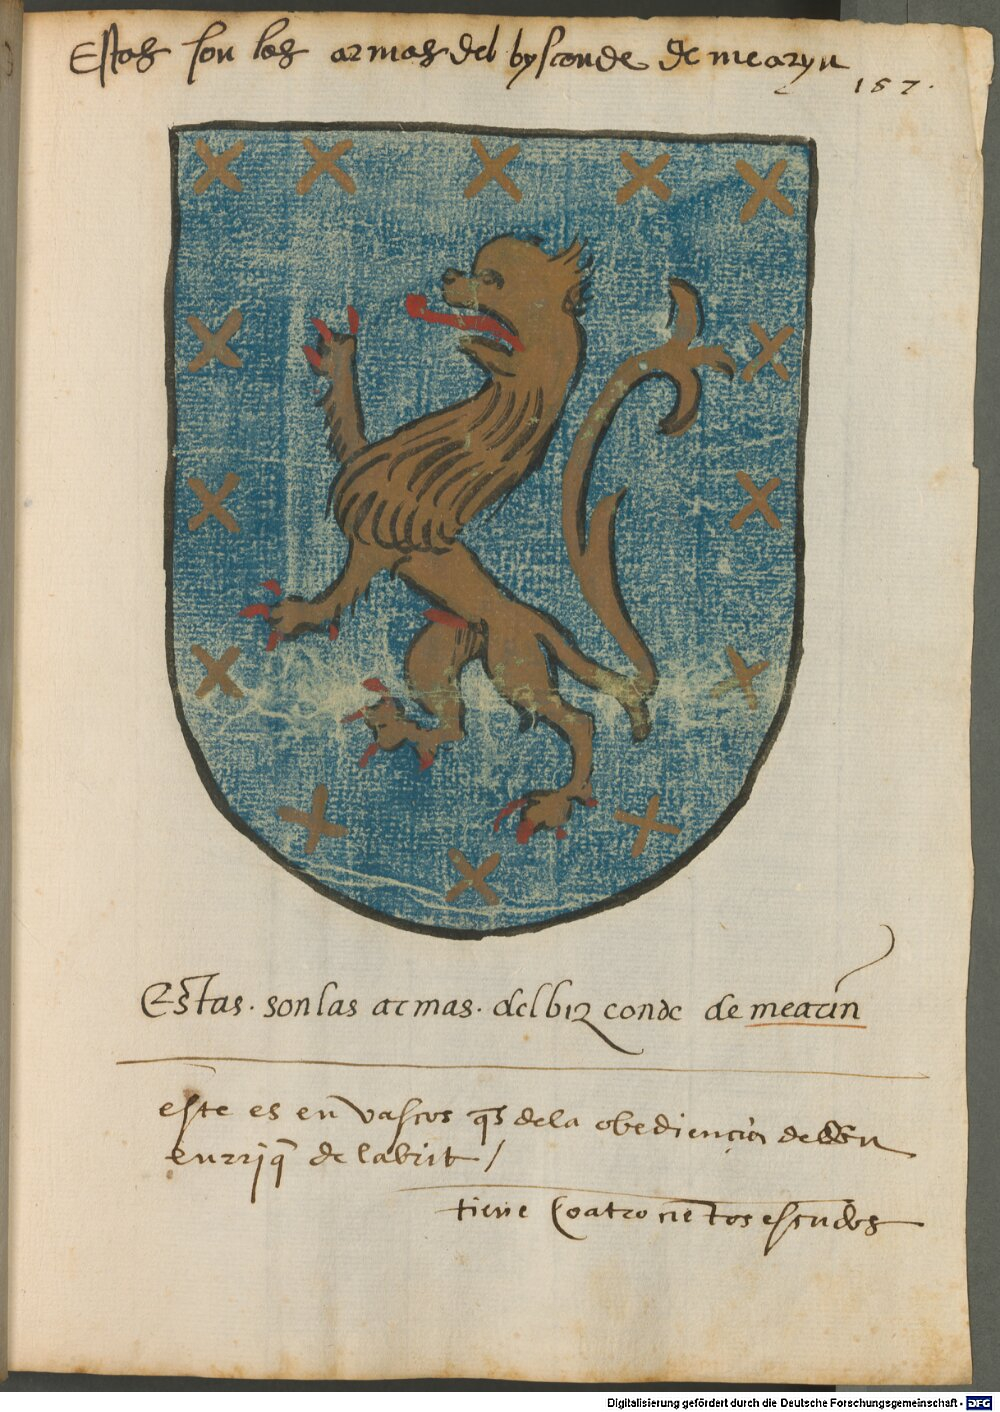 Estas son las armas del bysconde de mearyn
187.
Estas. son las armas. del biz conde de mearin
este es en vascos qs dela obediençia de don
enrriq̃ de labrit /
tiene Coatro cientos escudos
Digitalisierung gefördert durch die Deutsche Forschungsgemeinschaft - DFG